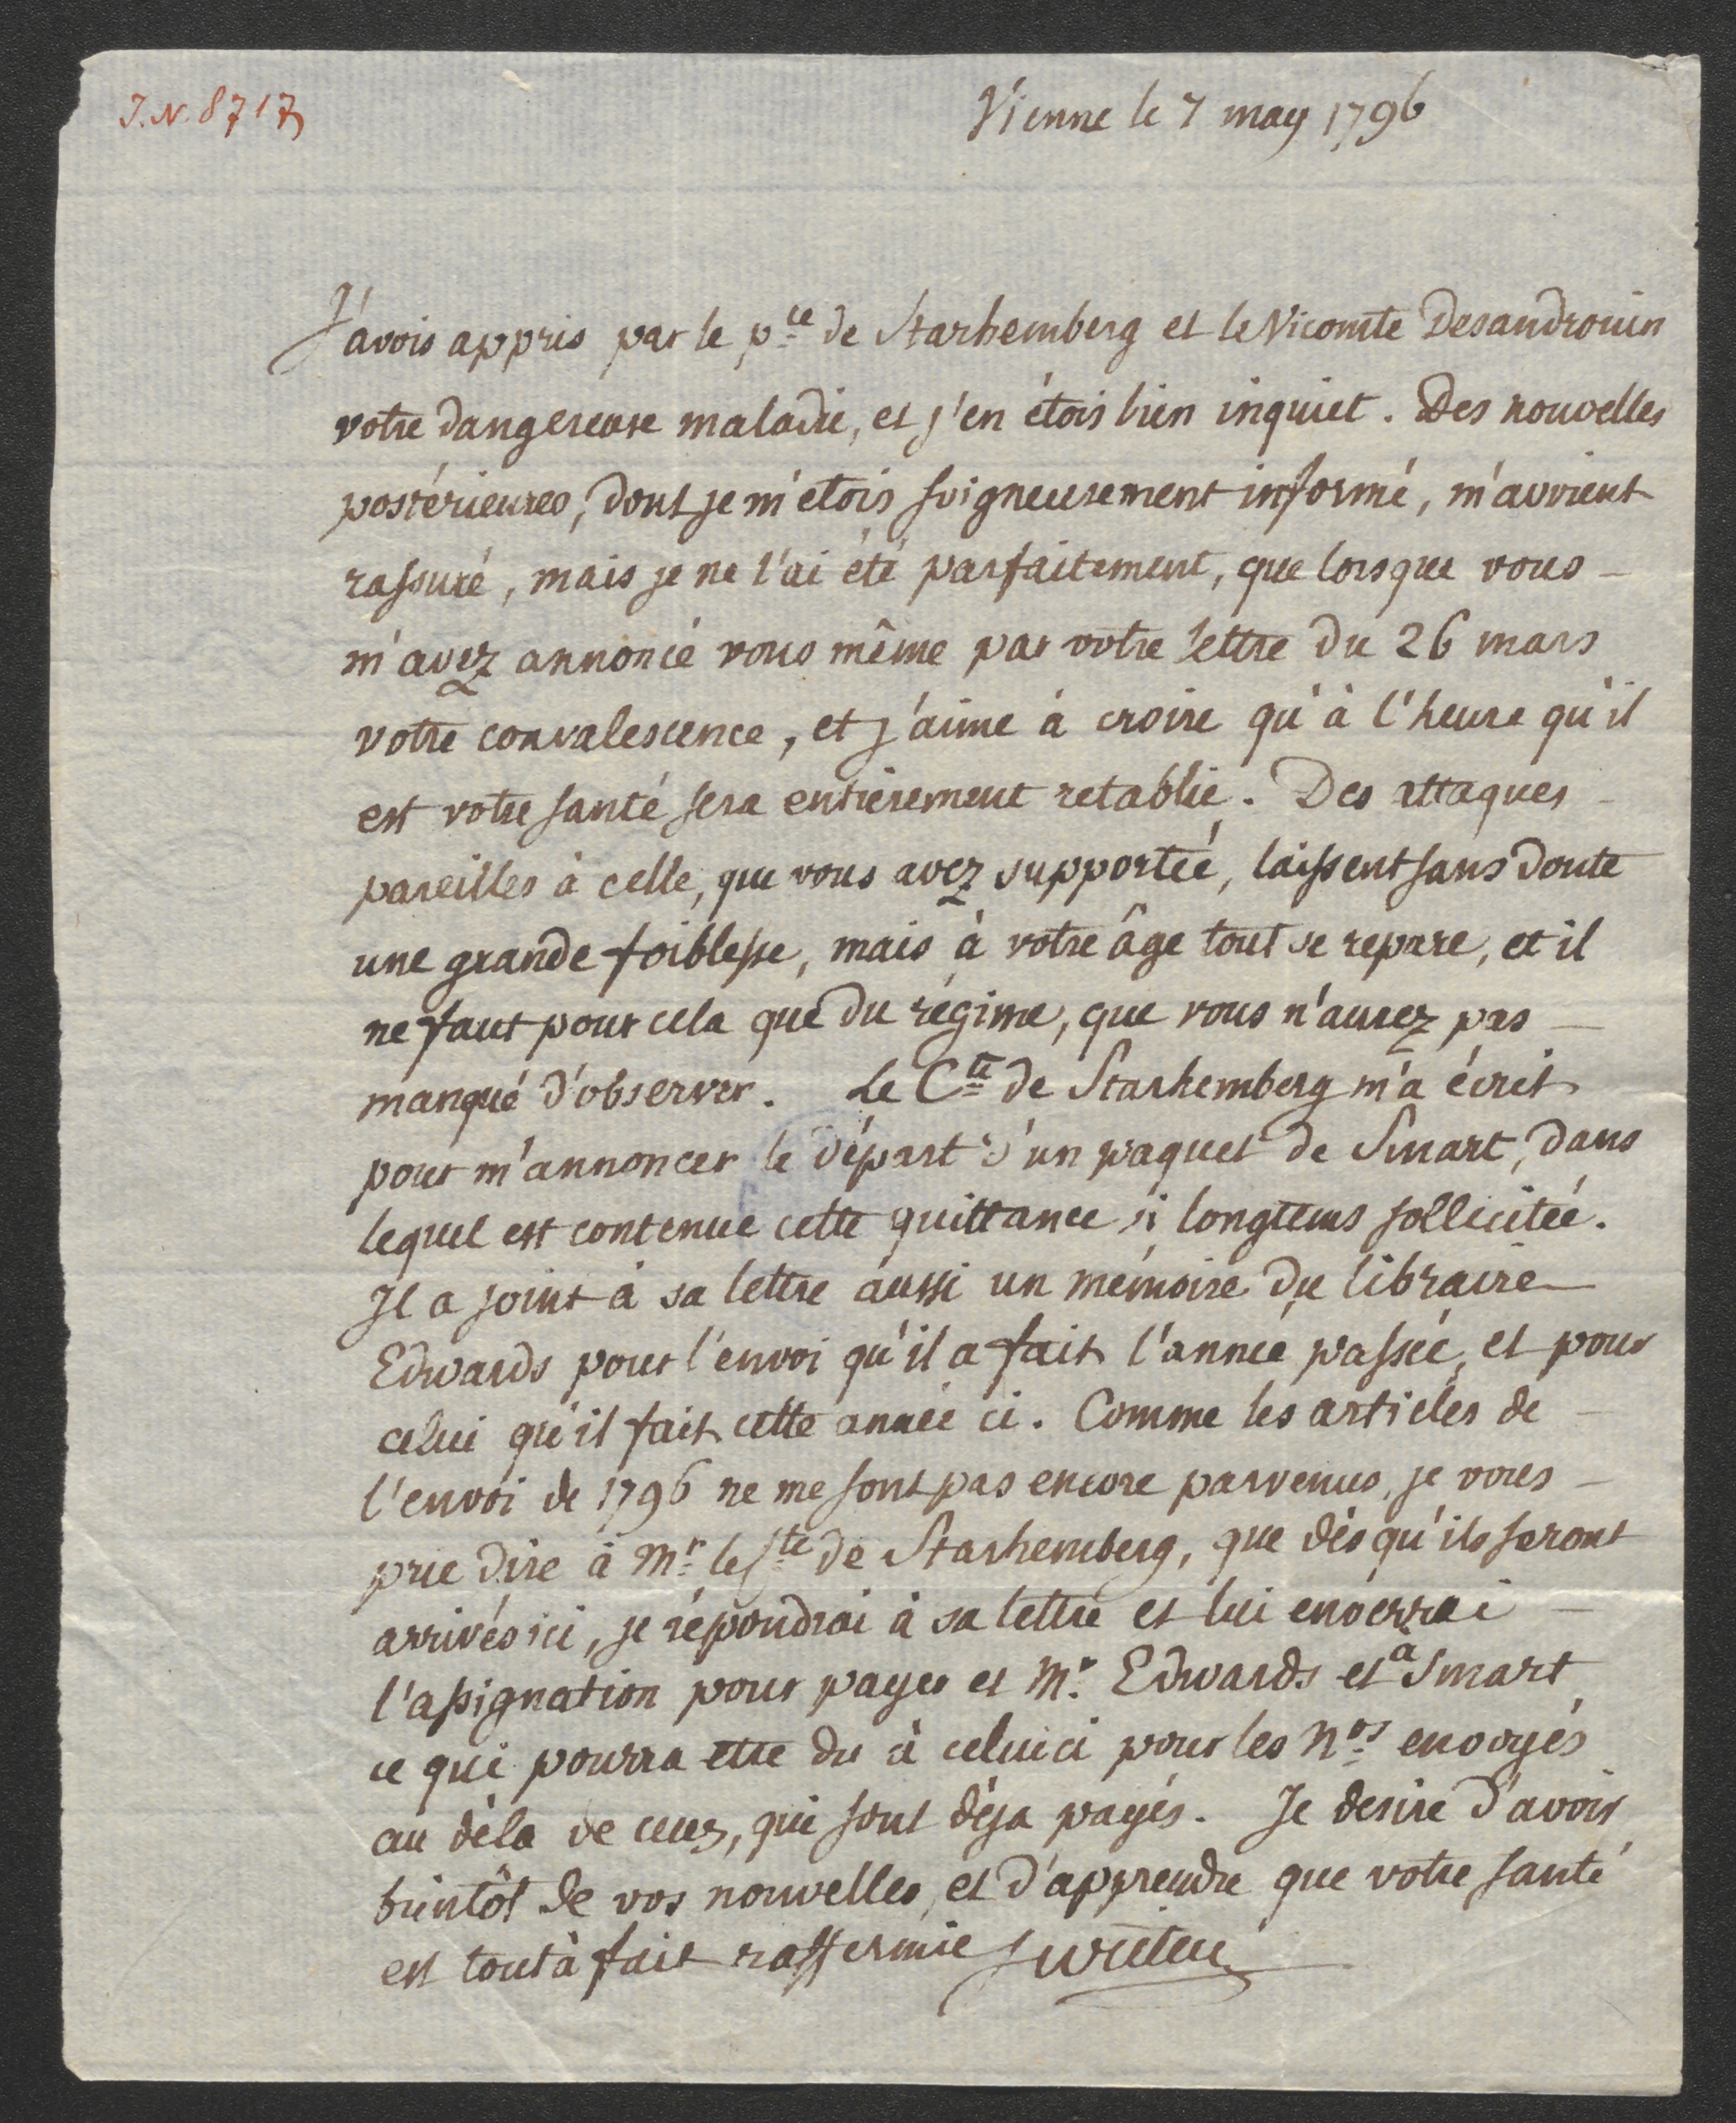 J.N. 8717
Vienne le 7 may 1796
J'avois appris par le p.ce de Starhemberg et le Vicomte Desandrouin
votre dangereuse maladie, et j'en étois bien inquiet. Des nouvelles
postérieures, dont je m'etois soigneusement informé, m'avoient
rassuré, mais je ne l'ai été parfaitement, que lorsque vous –
m'avez annoncé vous même par votre lettre du 26 mars
votre convalescence, et j'aime à croire qu'à l'heure qu'il
est votre santé sera entièrement retablie. Des attaques –
pareilles à celle, que vous avez supportée, laissent sans doute
une grande foiblesse, mais à votre âge tout se repare, et il
ne faut pour cela que du régime, que vous n'aurez pas –
manqué d'observer. Le C.te de Starhemberg m'a écrit
pour m'annoncer le départ d'un paquet de Smart, dans
lequel est contenue cette quittance si longtems sollicitée.
Il a joint à sa lettre aussi un mémoire du libraire
Edwards pour l'envoi qu'il a fait l'année passée, et pour
celui qu'il fait cette année ci. Comme les articles de –
l'envoi de 1796 ne me sont pas encore parvenus, je vous –
prie dire à M.r le C.te de Starhemberg, que dès qu'ils seront
arrivés ici, je répondrai à sa lettre et lui enverrai –
l'assignation pour payer et M.r Edwards et à Smart
ce qui pourra etre du à celuici pour les N.os envoyés
au dèla de ceux, qui sont déja payés. Je desire d'avoir
bientôt de vos nouvelles, et d'apprendre que votre santé
est tout à fait raffermie Swieten